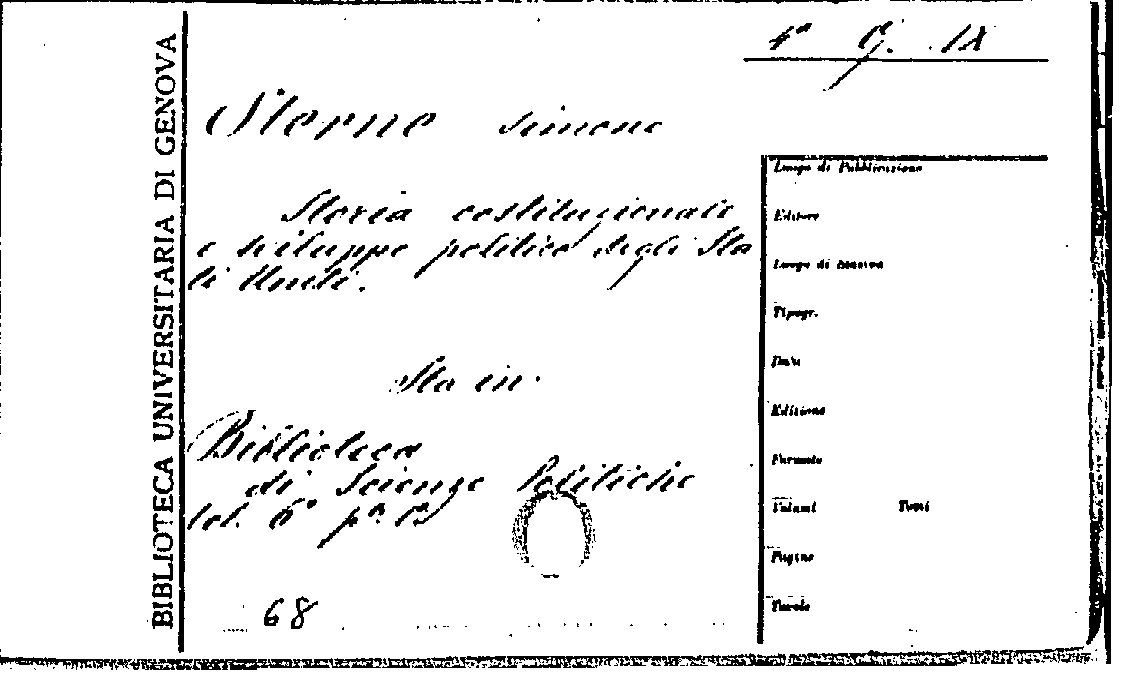 BIBLIOTECA UNIVERSITARIA DI GENOVA
4ª G. IX
Sterne Simone
Storia costituzionale
e sviluppo politico degli Sta
ti Uniti.
Sta in.
Biblioteca
di Scienze Politiche
Vol. 6º pª
68
Luogo di Pubblicazione
Editore
Luogo di Stampa
Tipogr.
Data
Edizione
Formato
Volumi Tomi
Pagine
Tavole